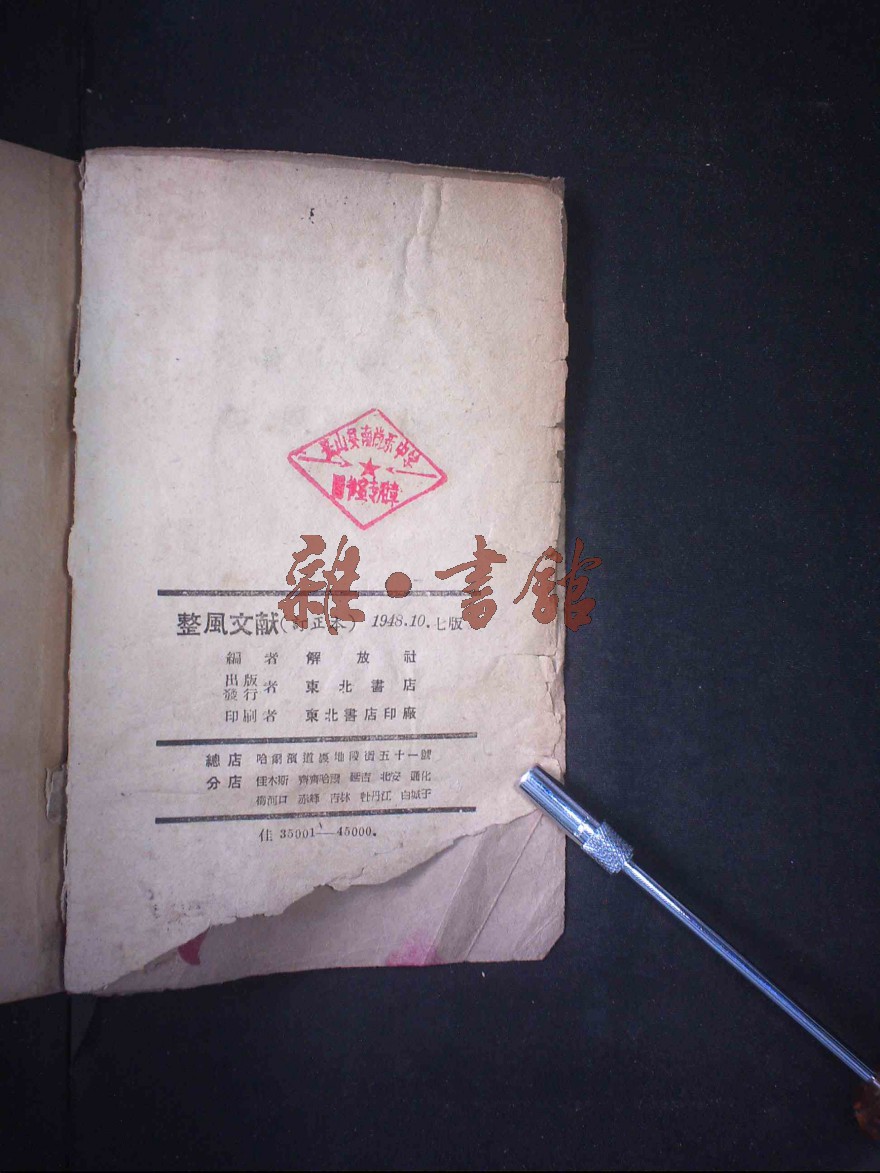 南尚乐中学
圖书室专用章
雜·書館
整風文献(訂正本) 1948.10.七版
編者 解放社
出版發行者 東北書店
印刷者 東北書店印廠
總店 哈爾濱道裏地段街五十一號
分店 佳木斯 齊齊哈爾 延吉 北安 通化
梅河口 赤峰 吉林 牡丹江 白城子
佳 35001—45000.